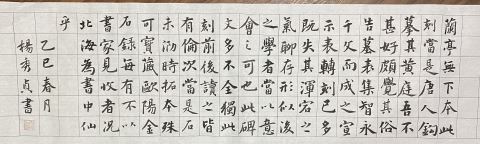 蘭亭無下本此
刻當是唐人鈎
摹其黃庭吾不
甚好頗其
告墓表智永
千文而成之宣
示表轉刻已多
既失其渾容之
氣聊存形似後
之學者當以意
會之可也此碑
文多不全獨此
刻前後讀之皆
有倫次當是石
未泐時拓本殊
可寶歐陽金
石錄每有不以
書家見收者況
北海為書中仙
乎
乙巳春月
楊秀貞書